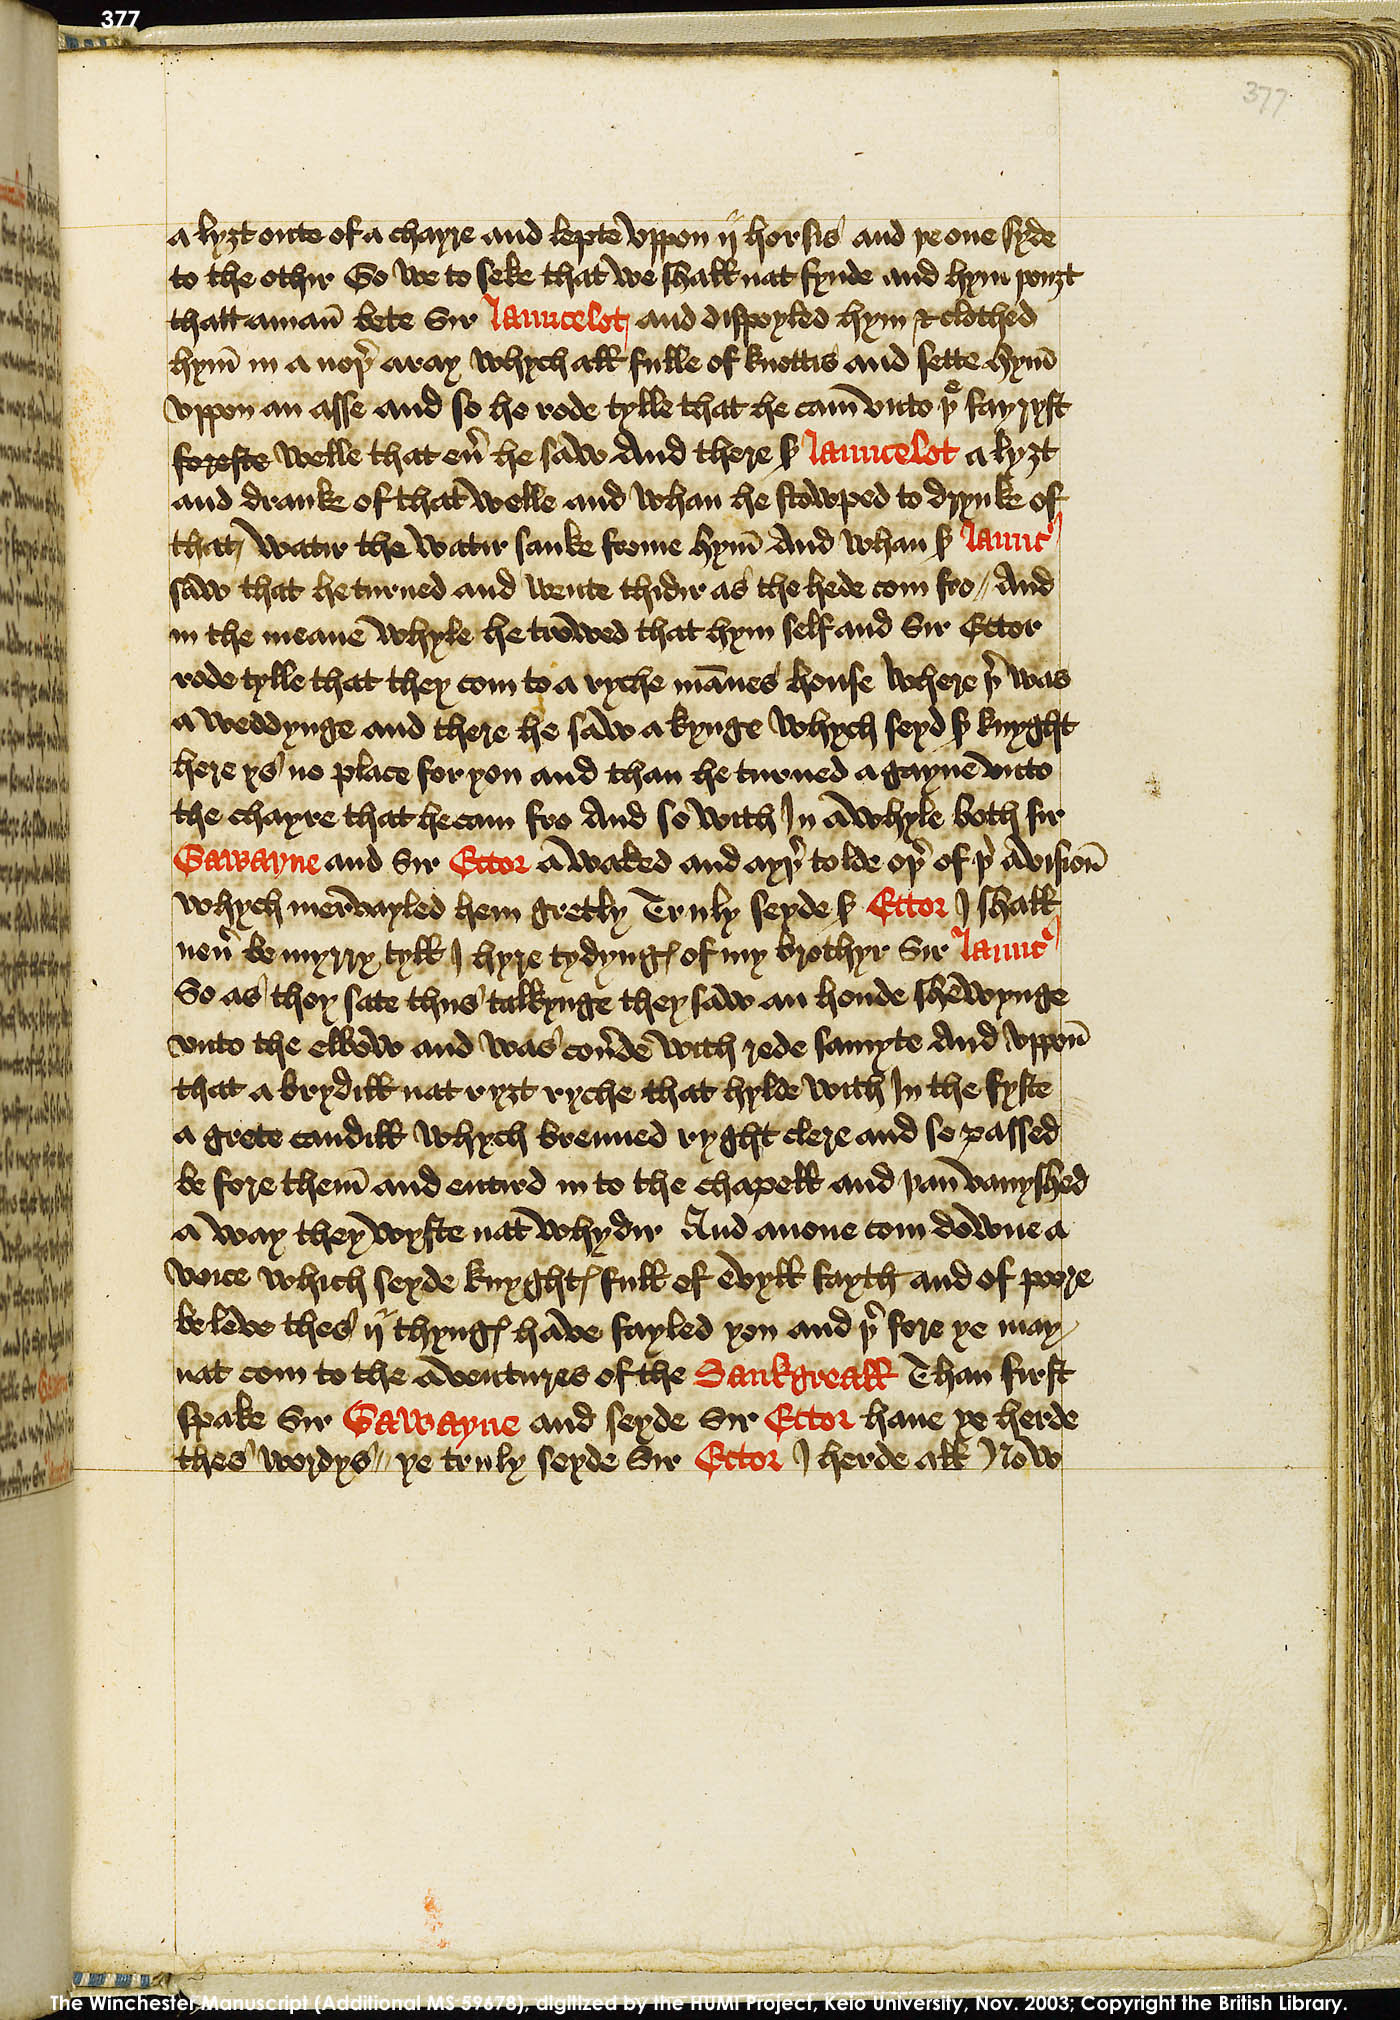 377
377
a lyȝt oute of a chayre and lepte vppon ij horsis and þe one syde
to the othir Go we to seke that we shall nat fynde and hym þouȝt
thatt a man̄ bete Sir Launcelot and dispoyled hym & clothed
hym̄ in a noþ̉ aray whych all fulle of knottis and sette hym̄
vppon an asse and so he rode tylle that he cam̄ vnto þͤ fayryst
foreste welle that eủ he saw And there ẜ Launcelot a lyȝt
and dranke of that welle and whan he stowped to drynke of
that watir the watir sanke frome hym̄ And whan ẜ Launc̉
saw that he turned and wente thidir as the hede com fro // And
in the meane whyle he trowed that hym self and Sir Ector
rode tylle that they com to a ryche mānes house where þ̉ was
a weddynge and there he saw a kynge whych seyd ẜ knyght
here ys no place for you and than he turned a gayne vnto
the chayre that he cam fro And so with In a whyle both sir
Gawayne and Sir Ector a waked and ayþ̉ tolde oþ̉ of þ̉ avision̄
whych mervayled hem gretly Truly seyde ẜ Ector I shall
neủ be myrry tyll I hyre tydyngꝭ of my brothyr Sir Launc̉
So as they sate thus talkynge they saw an honde shewynge
vnto the elbow and was coủde with rede samyte And vppon̄
that a brydill nat ryȝt ryche that hylde with In the fyste
a grete candill whych brenned ryght clere and so passed
be fore them̄ and entird in to the chapell and þan̄ vanyshed
a way they wyste nat whydir And anone com downe a
voice which seyde knyghtꝭ full of evyll fayth and of poore
beleve thes ij thyngꝭ have fayled you and þ̉ fore ye may
nat com to the aventures of the Sankgreall Than first
spake Sir Gawayne and seyde Sir Ector haue ye herde
thes wordys // ye truly seyde Sir Ector I herde all Now
The Winchester Manuscript (Additional MS 59678), digitized by the HUMI Project, Keio University, Nov. 2003; Copyright the British Library.